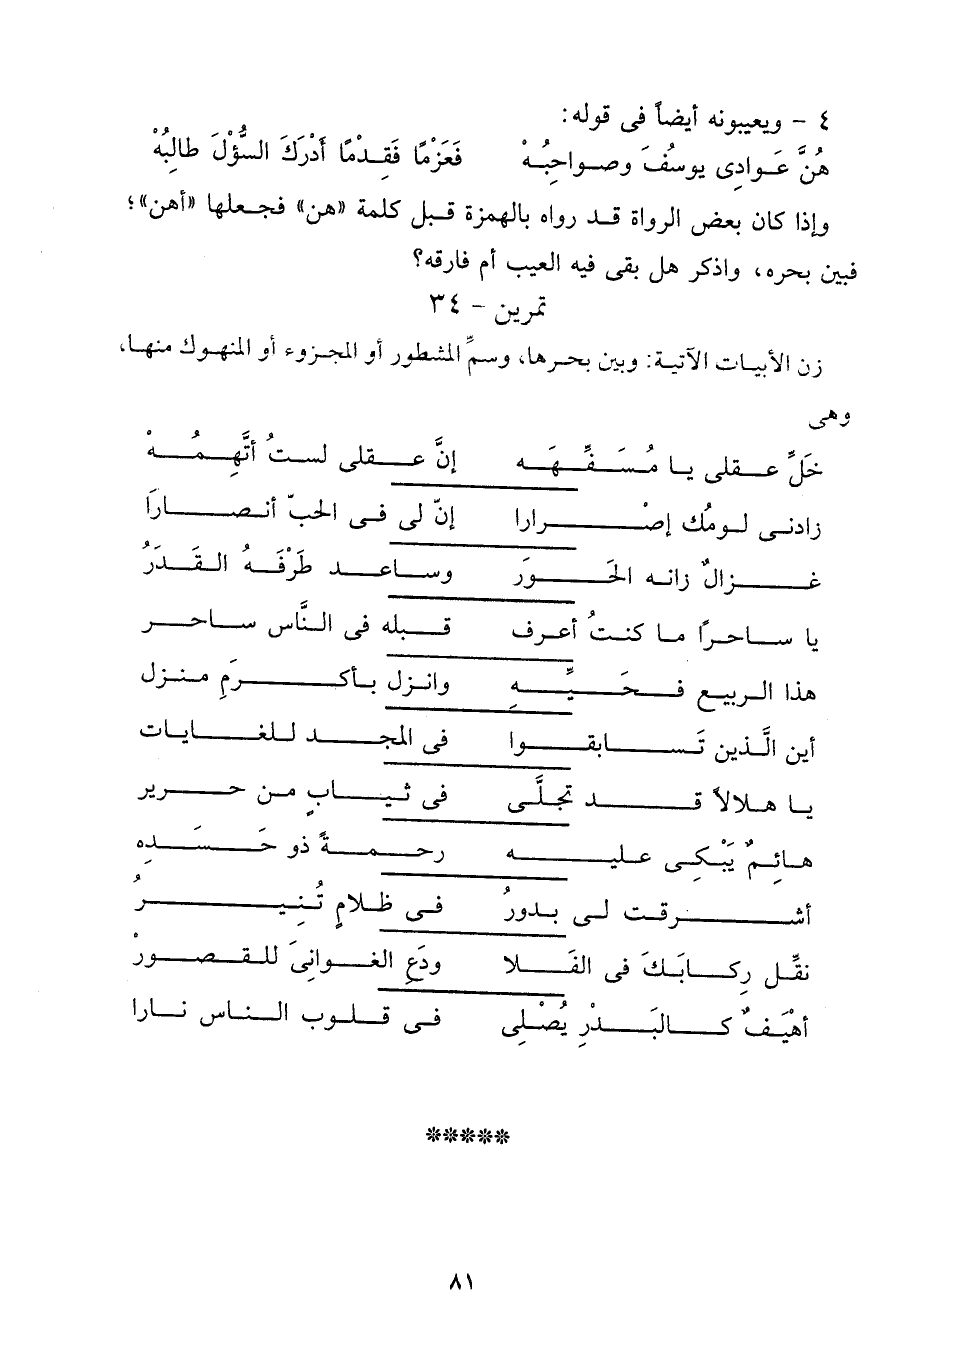 ٤ - ويعيبونه أيضاً فى قوله:
هُنَّ عَوادِى يوسُفَ وصواحِبُهْ فَعَزْمًا فَقِدْمًا أَدْرَكَ السُّؤْلَ طالِبُهْ
وإذا كان بعض الرواة قد رواه بالهمزة قبل كلمة «هن» فجعلها «أهن»؛
فبين بحره، واذكر هل بقى فيه العيب أم فارقه؟
تمرين - ٣٤
زن الأبيات الآتية: وبين بحرها، وسمِّ المشطور أو المجزوء أو المنهوك منها،
وهى
خَلِّ عقلى يا مُسَفِّهَه إنَّ عقلى لستُ أتَّهِمُهْ
زادنى لومُك إصْرارا إنّ لى فى الحبّ أنصارَا
غزالٌ زانه الحَوَرُ وساعد طَرْفَهُ القَدَرُ
يا ساحرًا ما كنتُ أعرف قبله فى النَّاس ساحر
هذا الربيع فحَيِّهِ وانزل بأكرَمِ منزل
أين الَّذين تَسابقوا فى المجد للغايات
يا هلالاً قد تجلَّى فى ثيابٍ من حرير
هائِمٌ يَبْكِى عليه رحمةً ذو حَسَدِه
أشرقت لى بدورُ فى ظلامٍ تُنِيرُ
نقِّل رِكابَكَ فى الفَلا ودَعِ الغوانِىَ للقصورْ
أهْيَفٌ كالبَدْرِ يُصْلِى فى قلوب الناس نارا
*****
٨١